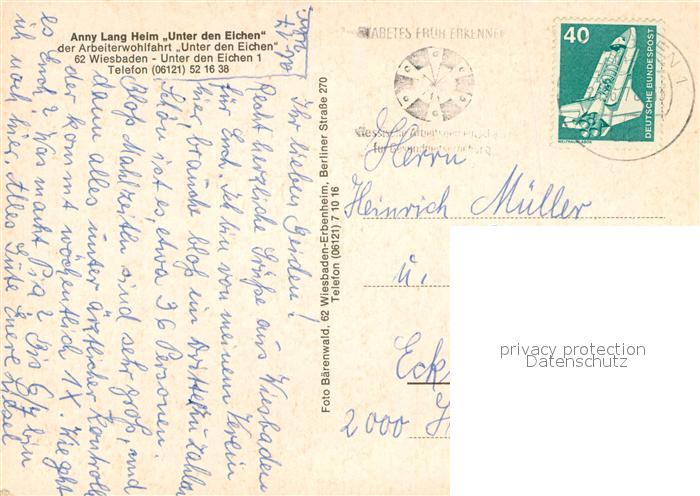 Anny Lang Heim „Unter den Eichen"
der Arbeiterwohlfahrt „Unter den Eichen"
62 Wiesbaden - Unter den Eichen 1
Telefon (06121) 52 16 38
Ihr lieben Beiden!
Recht herzliche Grüße aus Wiesbaden
für Euch. Ich bin von meinem Verein
hier, brauche bloß ein Drittel zu zahlen
Schön ist es, etwa 36 Personen.
Bloß Mahlzeiten sind sehr groß, und
dann alles unter ärztlicher Kontrolle
der kommt wöchentlich 1X. Wie geht
es Euch? Was macht Pia? Bis 6/7 bin
ich noch hier. Alles Gute Eure Liesel
Foto Bärenwald, 62 Wiesbaden-Erbenheim, Berliner Straße 270
Telefon (06121) 7 10 16
DIABETES FRÜH ERKENNEN
Hessische Arbeitsgemeinschaft
für Gesundheitserziehung
40
DEUTSCHE BUNDESPOST
WELTRAUMLABOR
1
Herrn
Heinrich Müller
u.
Eck
2000 H
privacy protection
Datenschutz